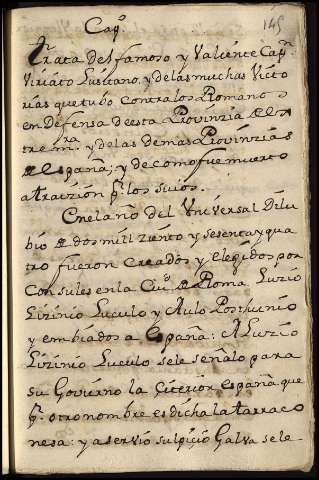 145
Capº
Trata del famoso y Valiente Capⁿ
Viriato Lusitano, y de las muchas Victo
rias que tubo contra los Romanos
en Defensa de esta Provinzia
tre mᵃ. y de las demas Provinzias
de España; y de como fue muerto
a traizion pʳ. los suios.
En el año del Vniversal Dilu
bio de dos mill ziento y sesenta y qua
tro fueron creados y elegidos por
Consules en la Ciuᵈ. de Roma. Luzio
Lizinio Luculo y Aulo Posthumio
y embiados a España: A Luzio
Lizinio Luculo se le señalo para
su Govierno la Citerior España que
pʳ. otro nombre es dicha la tarraco
nesa: y a servio sulpiçio Galva se le